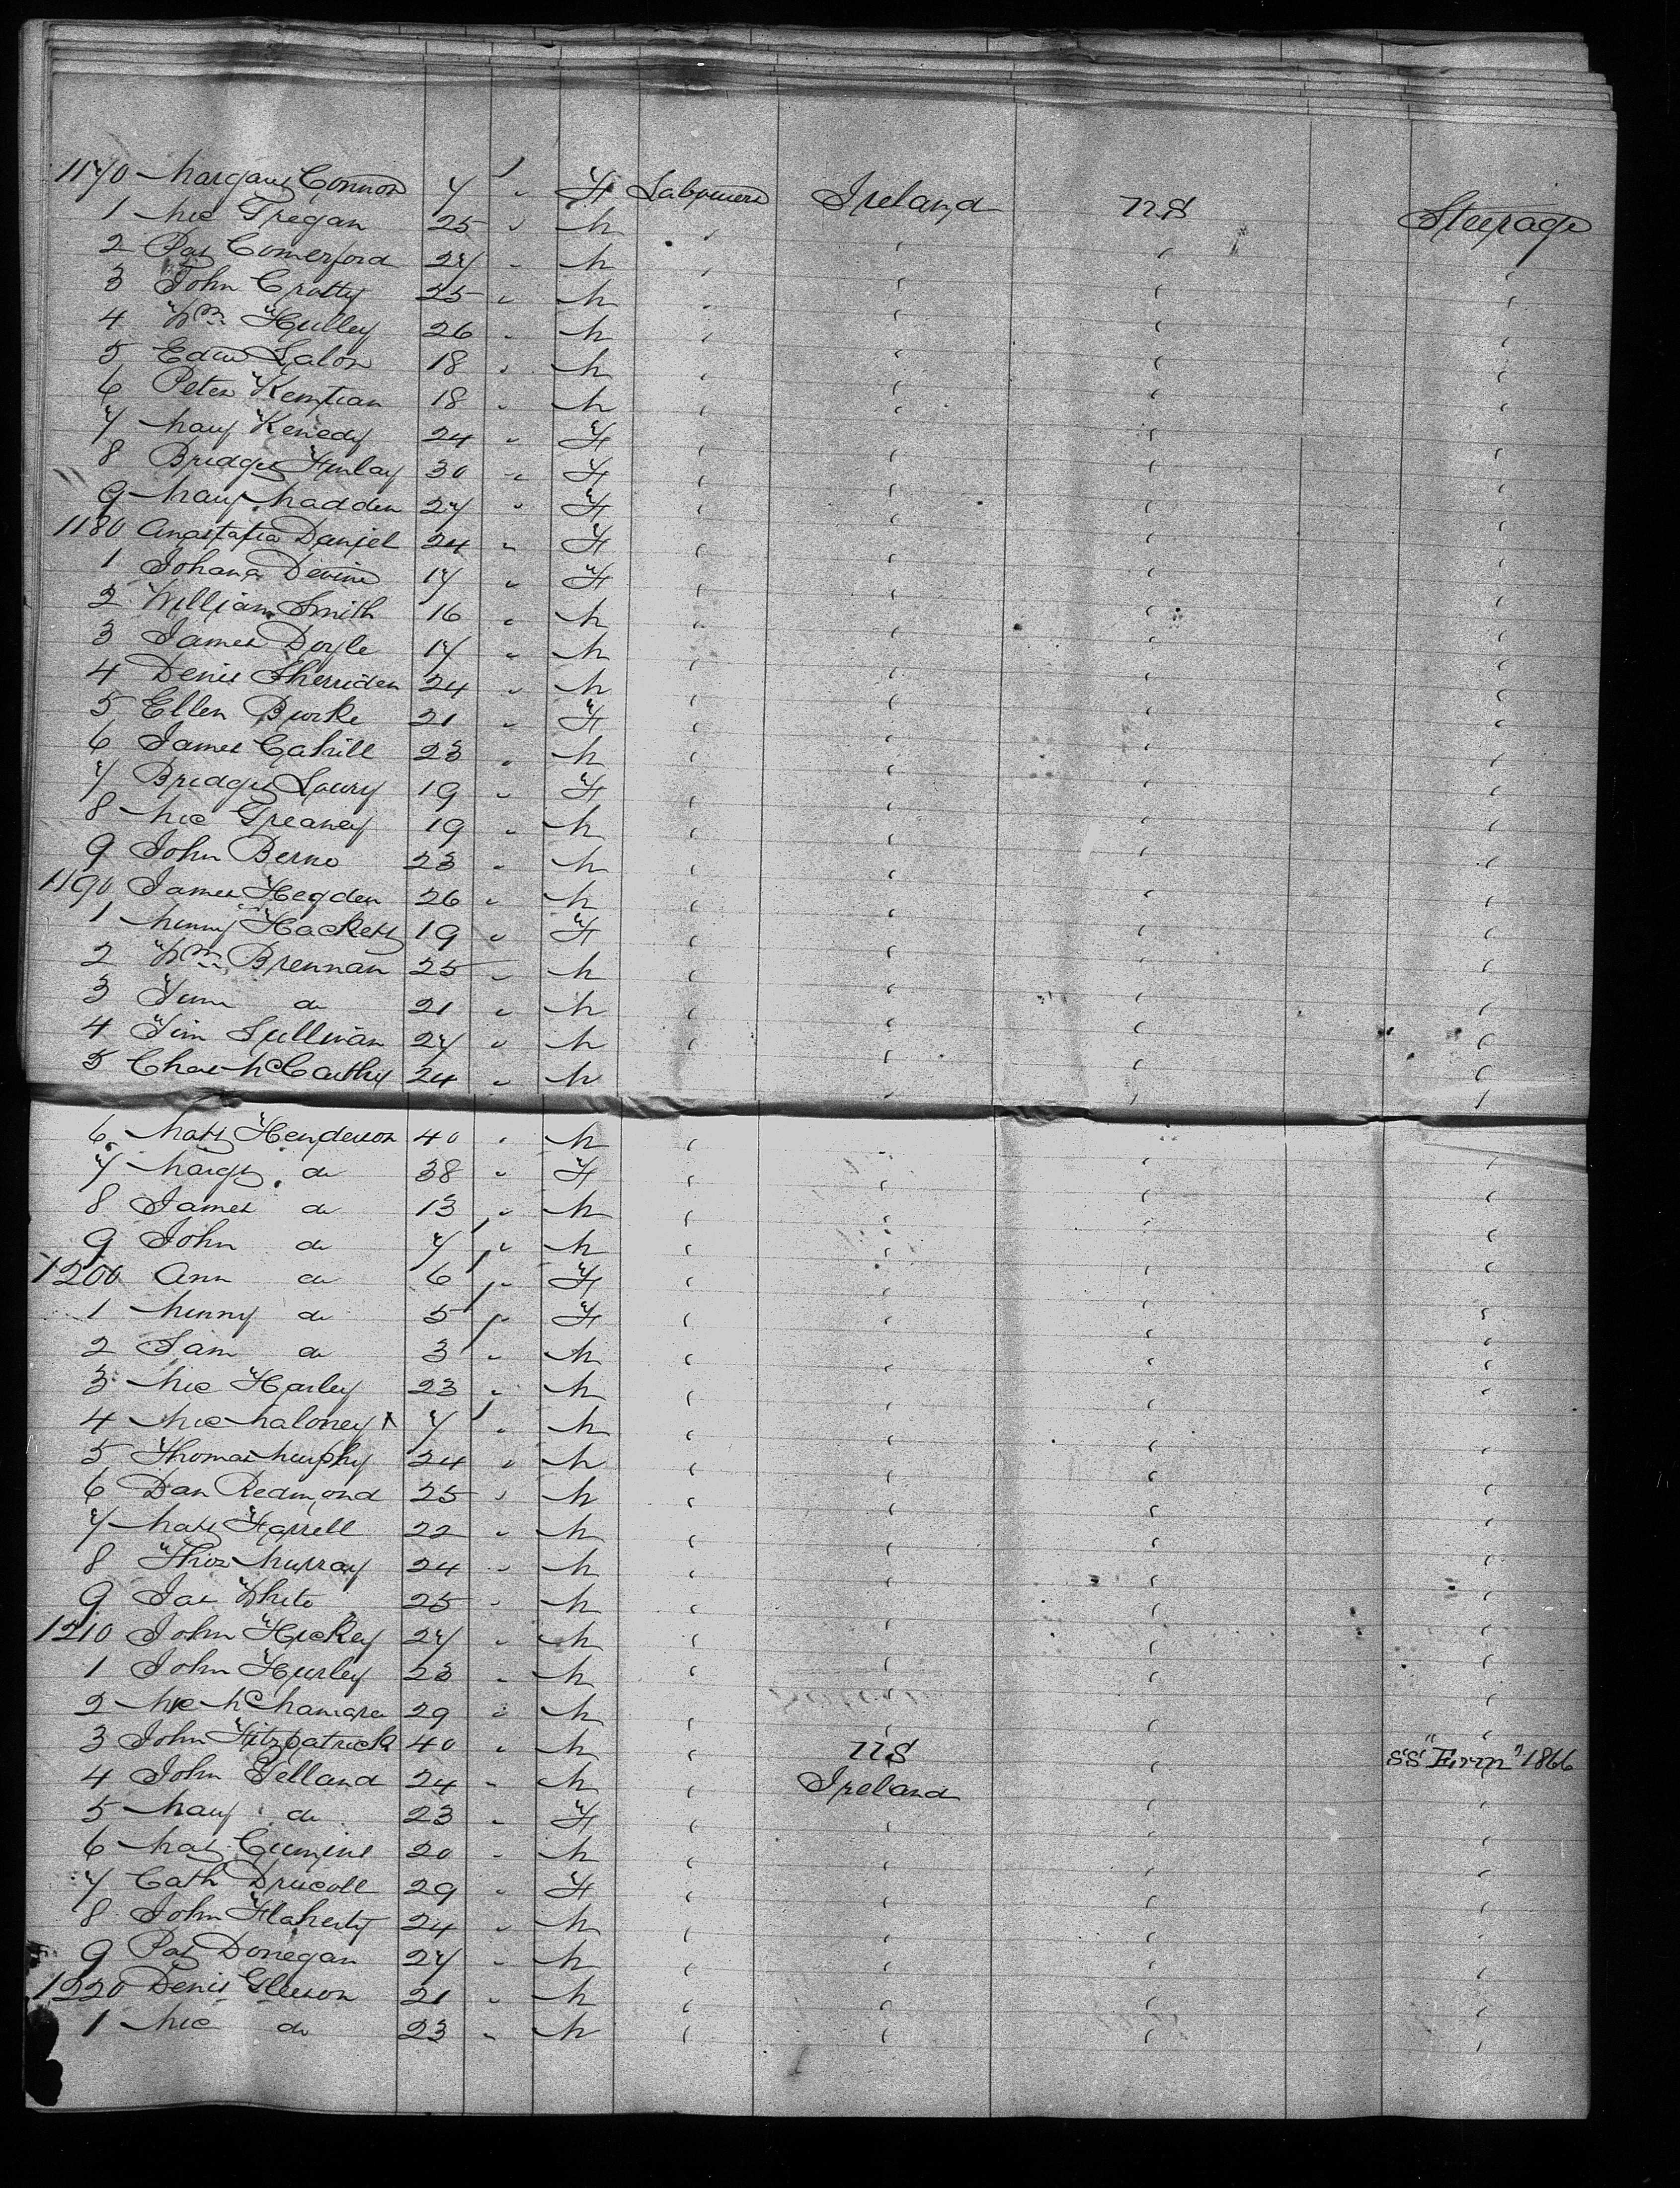 1170 Margaret Connor 7 " F Labourers Ireland US Steerage
1 Mic Tregan 25 " M " " " "
2 Pat Comerford 27 " M " " " "
3 John Cratty 25 " M " " " "
4 Wm Hulley 26 " M " " " "
5 Edw Lalor 18 " M " " " "
6 Peter 18 " M " " " "
7 Mary Kenedy 24 " F " " " "
8 Bridget Finlay 30 " F " " " "
9 Mary Madden 27 " F " " " "
1180 Anastatia Daniel 24 " F " " " "
1 Johana Devine 17 " F " " " "
2 William Smith 16 " M " " " "
3 James Doyle 17 " M " " " "
4 Denis Sherriden 24 " M " " " "
5 Ellen Burke 21 " F " " " "
6 James Cahill 23 " M " " " "
7 Bridget Lowry 19 " F " " " "
8 Mic Greaney 19 " M " " " "
9 John Berne 23 " M " " " "
1190 James Hegden 26 " M " " " "
1 Minny Hackett 19 " F " " " "
2 Wm Brennan 25 " M " " " "
3 do 21 " M " " " "
4 Tim Sullivan 27 " M " " " "
5 Chas McCarthy 24 " M " " " "
6 Matt Henderson 40 " M " " " "
7 Margt do 38 " F " " " "
8 James do 13 " M " " " "
9 John do 7 " M " " " "
1200 Ann do 6 " F " " " "
1 Minny do 5 " F " " " "
2 Sam do 3 " M " " " "
3 Mic Harley 23 " M " " " "
4 Mic Maloney 7 " M " " " "
5 Thomas Murphy 24 " M " " " "
6 Dan Redmond 25 " M " " " "
7 Matt Farrell 22 " M " " " "
8 Thos Murray 24 " M " " " "
9 Jas White 25 " M " " " "
1210 John Hickey 27 " M " " " "
1 John Hurley 23 " M " " " "
2 Mic McNamara 29 " M " " " "
3 John Fitzpatrick 40 " M " US " SS "Erin" 1866
4 John Gelland 24 " M " Ireland " "
5 Mary do 23 " F " " " "
6 Mat Cumins 20 " M " " " "
7 Cath Driscoll 29 " F " " " "
8 John Flaherty 24 " M " " " "
9 Pat Donegan 27 " M " " " "
1220 Denis Gleeson 21 " M " " " "
1 Mic do 23 " M " " " "